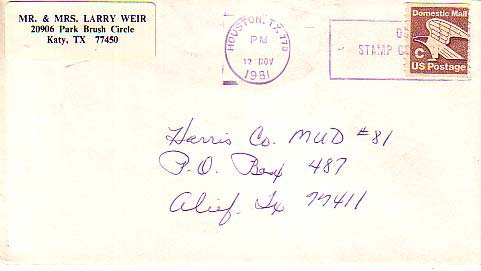 MR. & MRS. LARRY WEIR
20906 Park Brush Circle
Katy, TX 77450
HOUSTON, TX 770
PM
17 NOV
1981
STAMP CO
Domestic Mail
C
US Postage
Harris Co. MUD #81
P.O. Box 487
Alief, Tx 77411